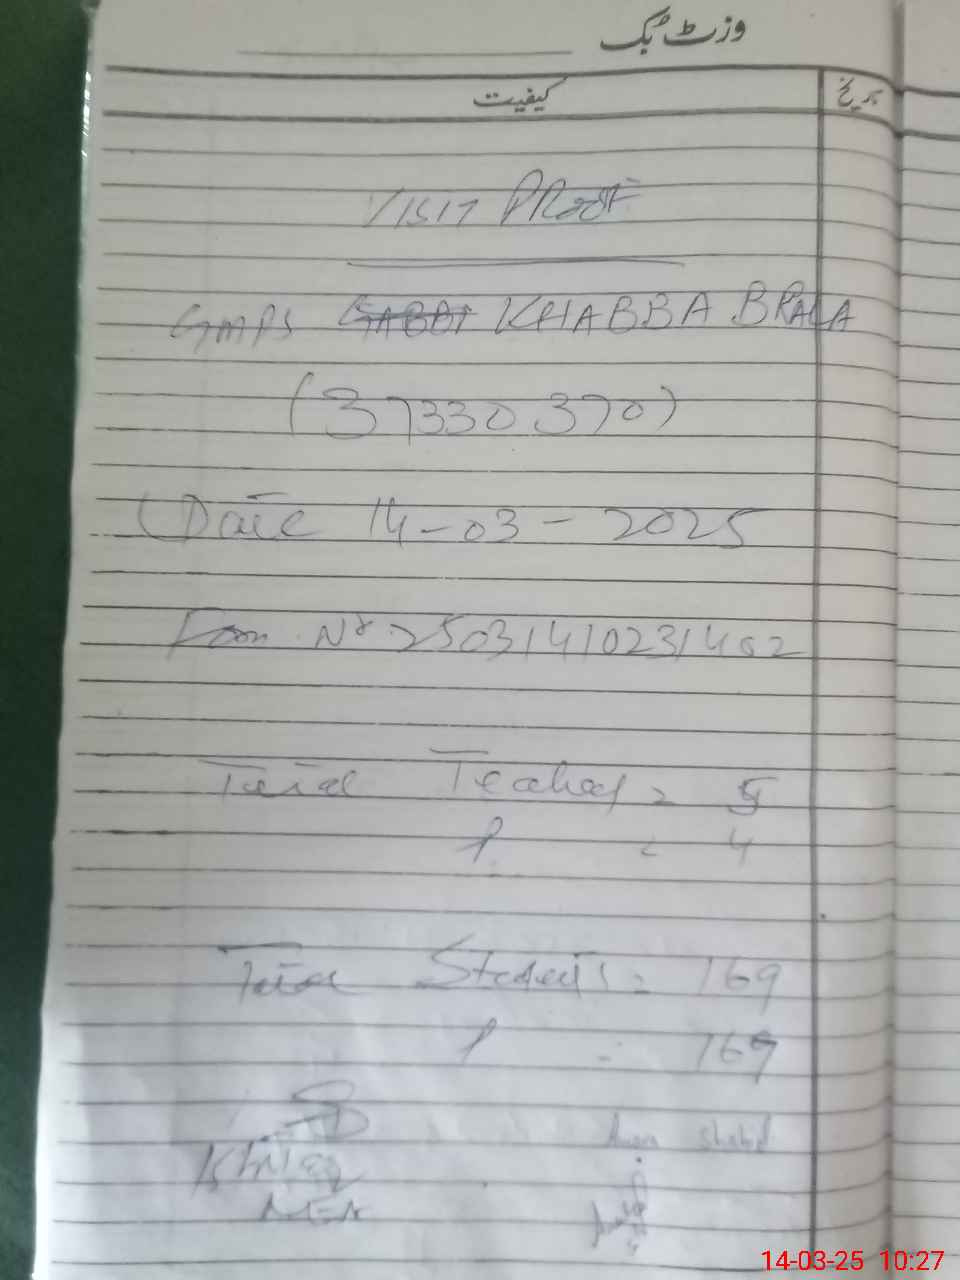 وزٹ بک
کیفیت
تاریخ
VISIT PROOF
GMPS KHABBA BRALA
(37330370)
Date 14-03-2025
Form No. 25031410231402
Total Teachers = 5
P = 4
Total Students = 169
P = 169
Shahid
AEO
14-03-25 10:27